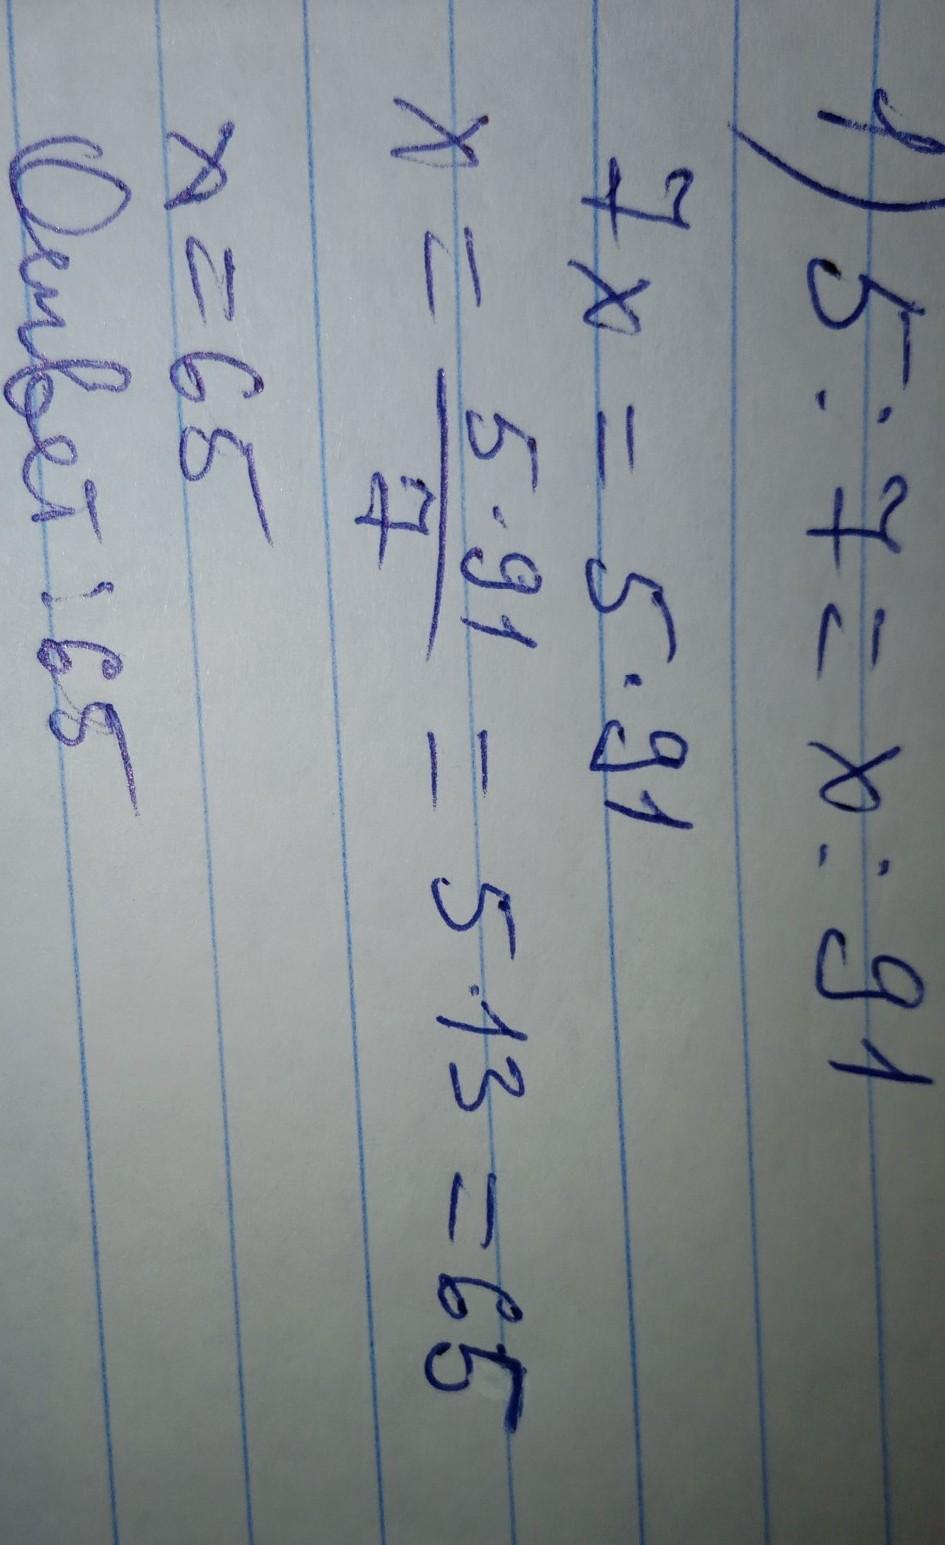 1) 5 : 7 = x : 91
7x = 5 · 91
x = \frac{5 · 91}{7} = 5 · 13 = 65
x = 65
Ответ: 65